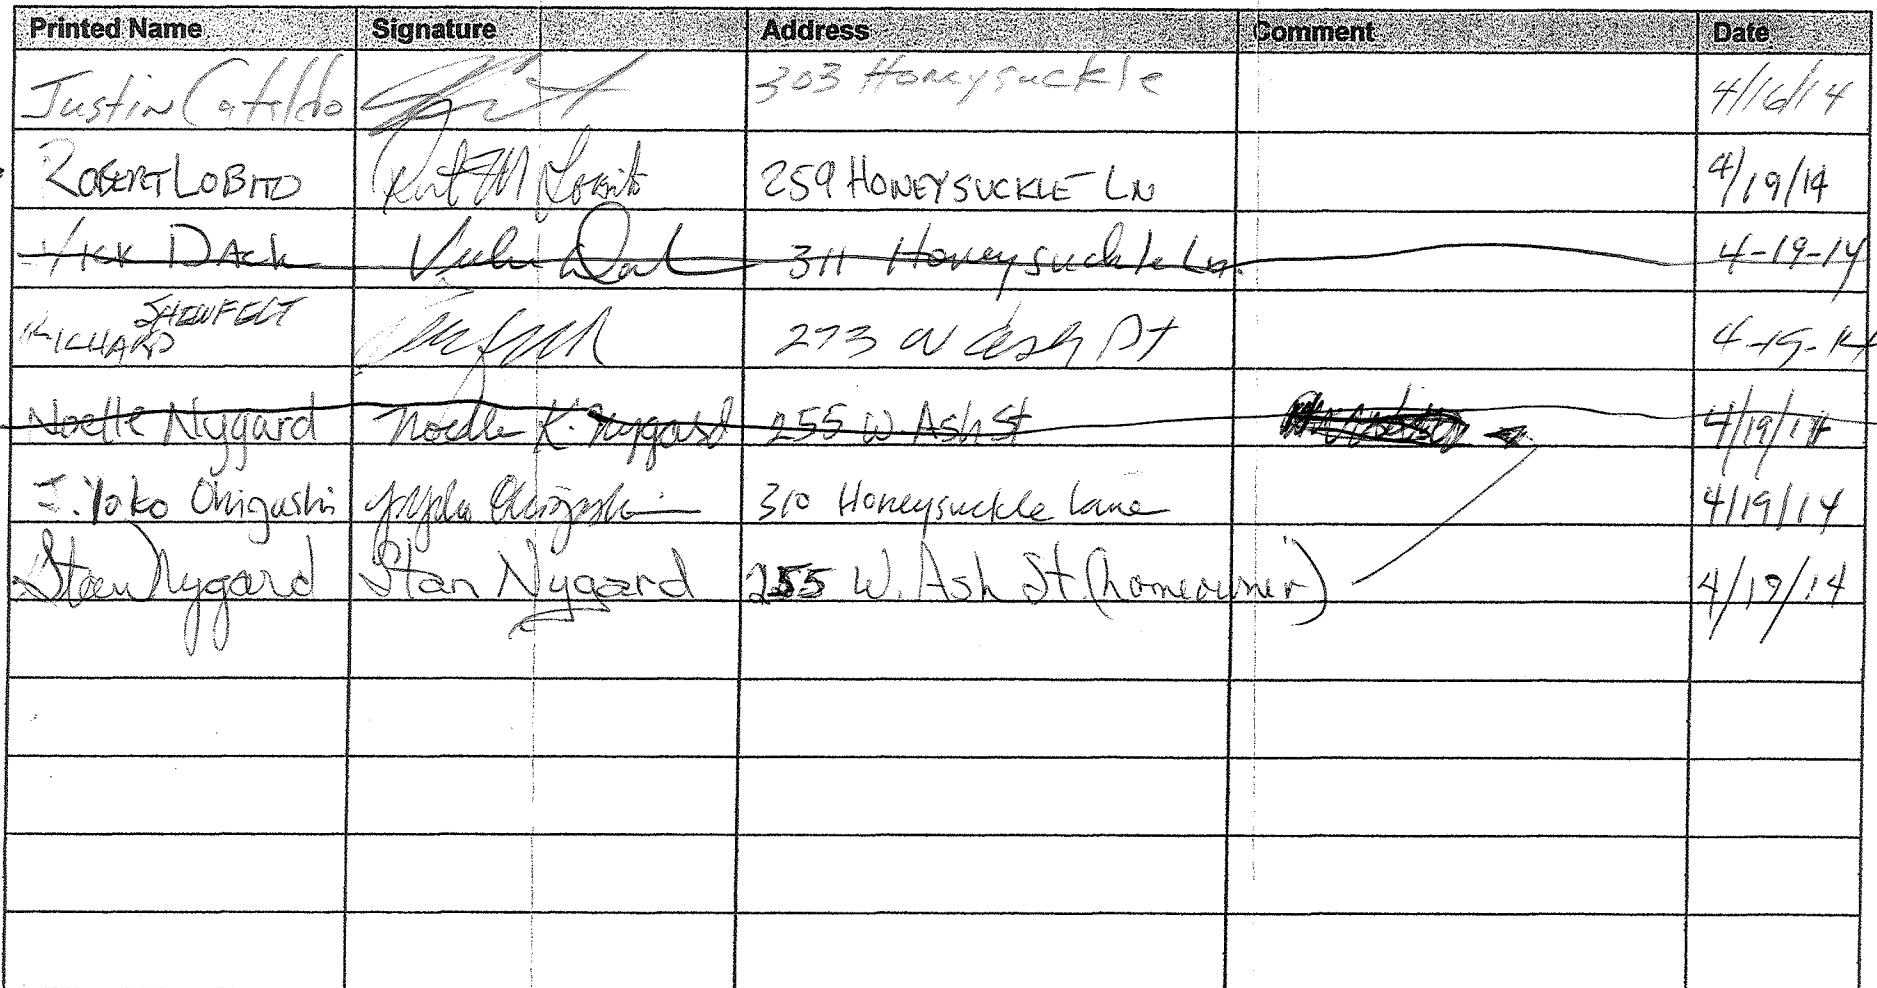 Printed Name Signature Address Comment Date
Justin Cataldo 303 Honeysuckle 4/16/14
ROBERT LOBITO 259 HONEYSUCKLE LN 4/19/14
DAck 311 Honeysuckle Ln. 4-19-14
SHEWFELT
RICHARD 273 W Ash St 4-19-14
Noelle Nygard Noelle K. Nygard 255 W. Ash St 4/19/14
J. Yoko Ohigashi 310 Honeysuckle Lane 4/19/14
Stan Nygard Stan Nygard 255 W. Ash St (homeowner) 4/19/14